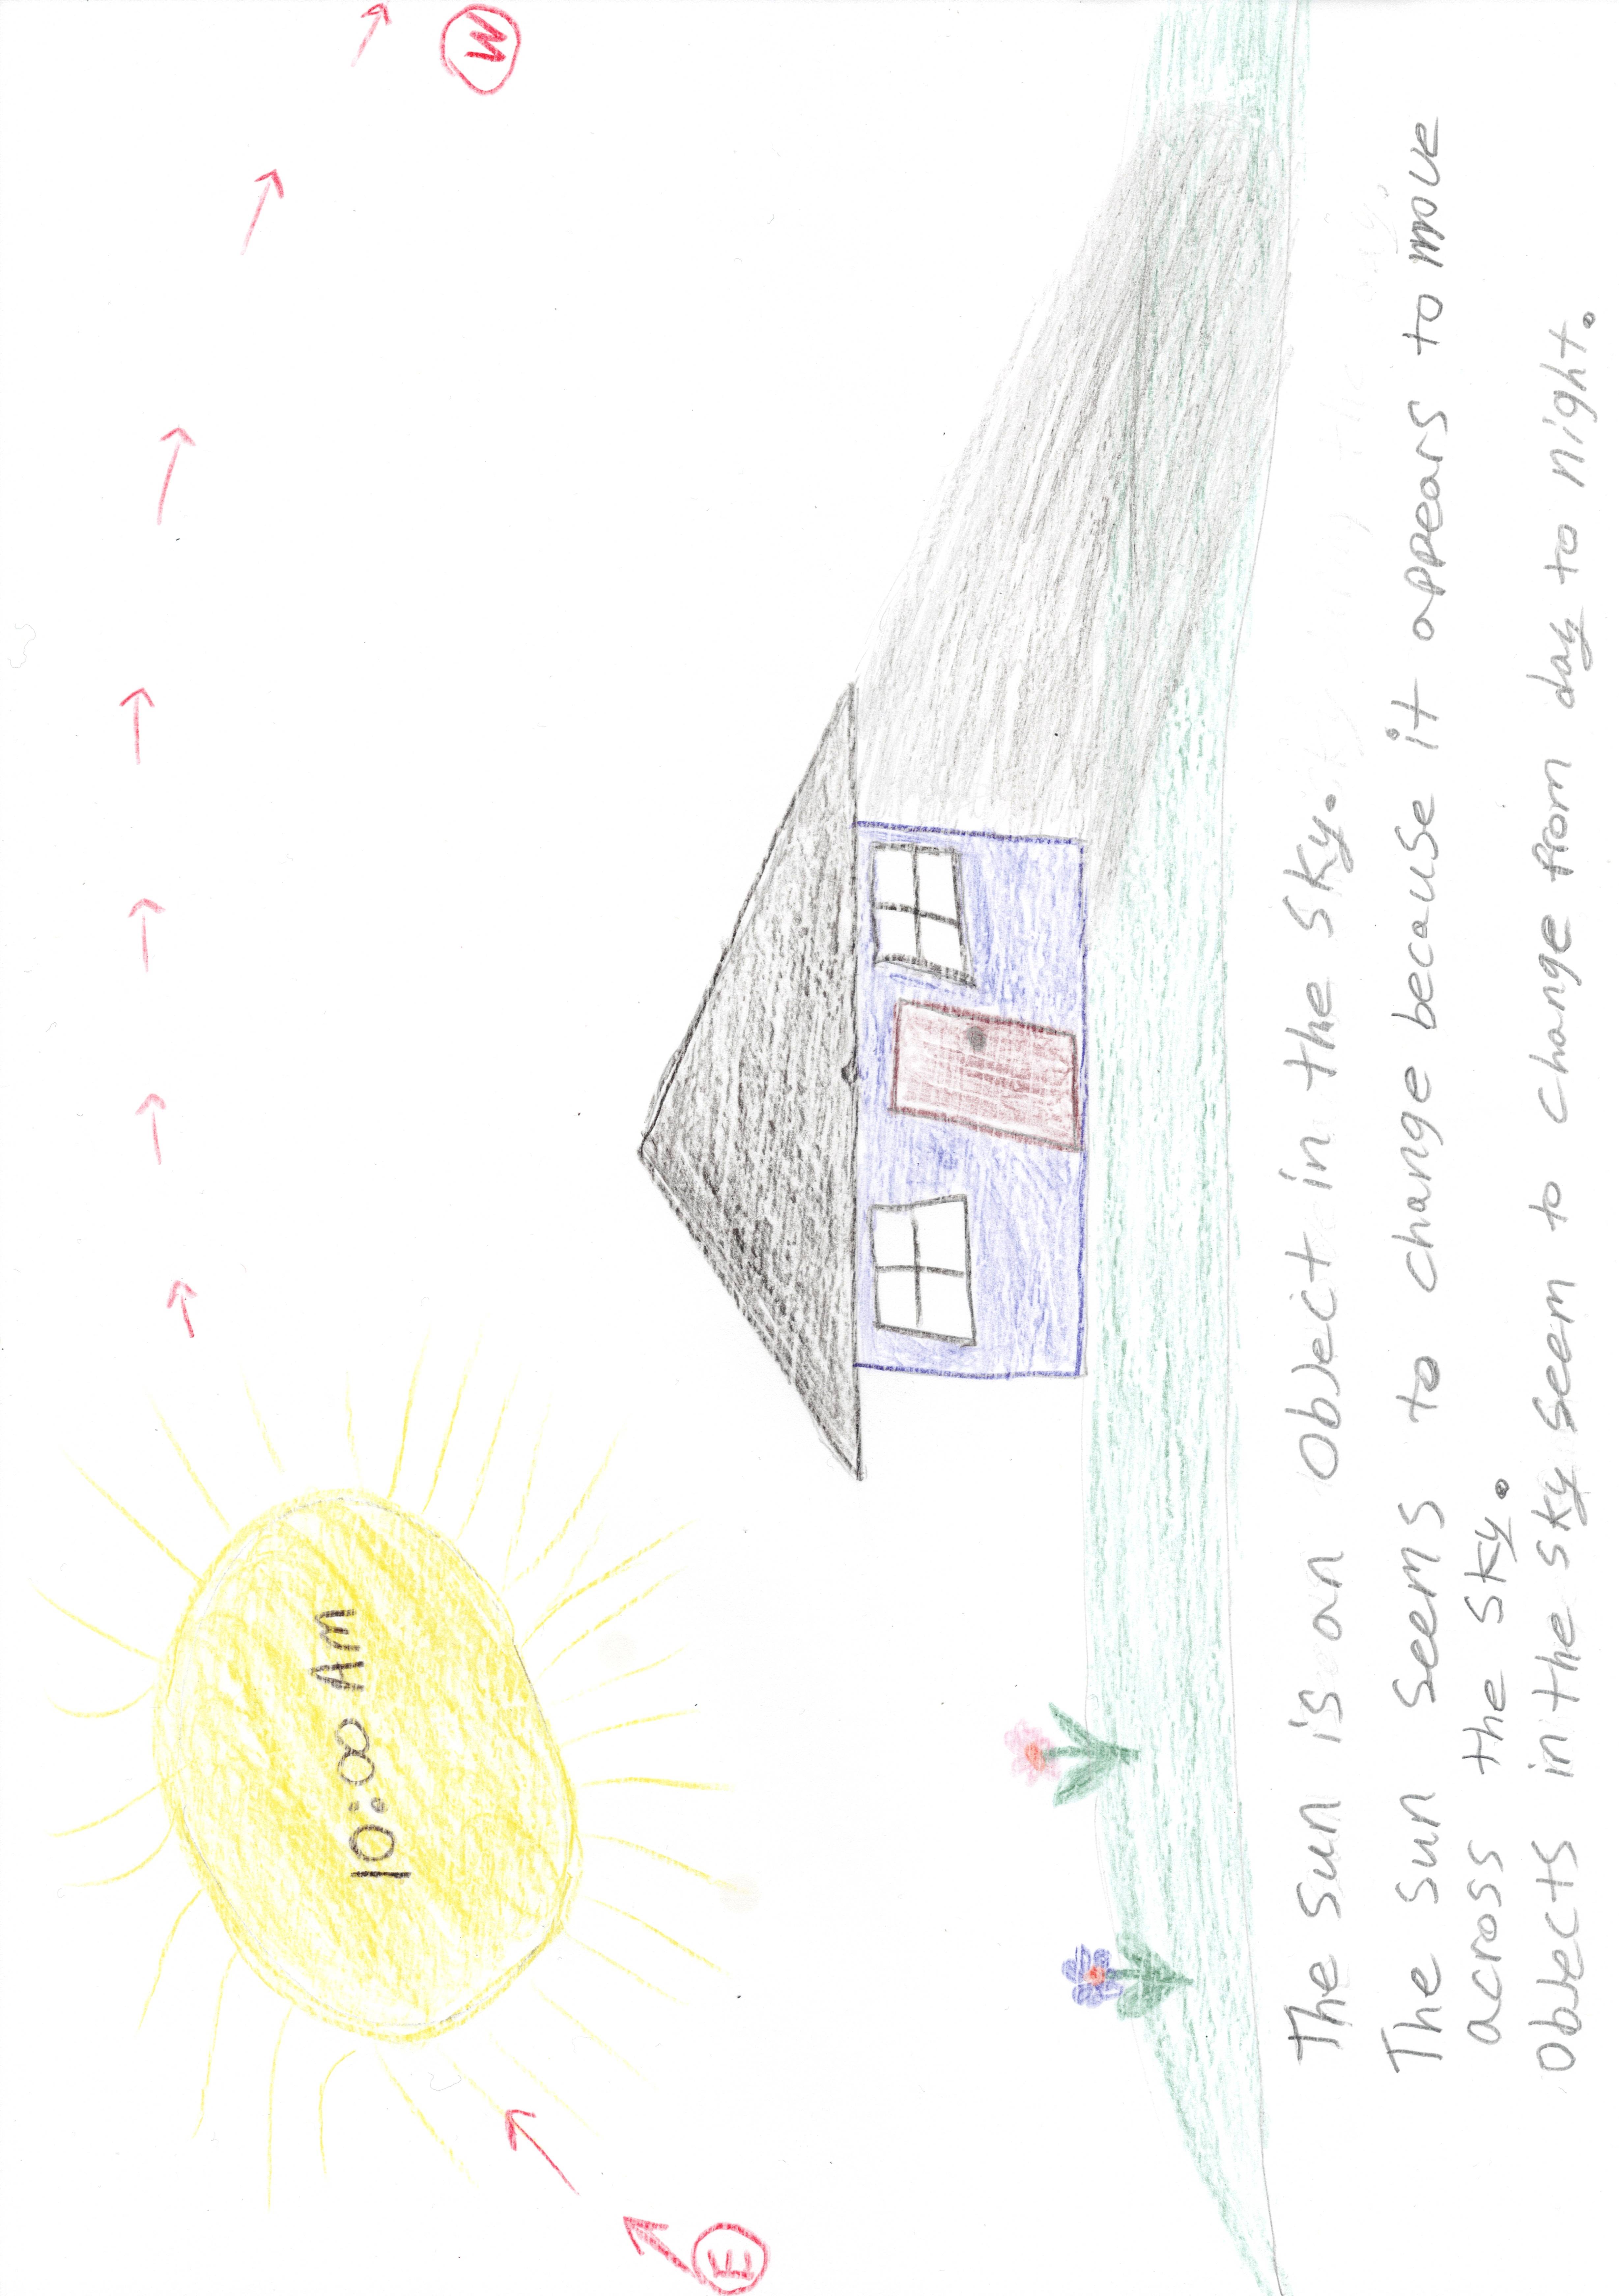 W
10:00 AM
E
The sun is an object in the sky.
The sun seems to change because it appears to move
across the sky.
Objects in the sky seem to change from day to night.